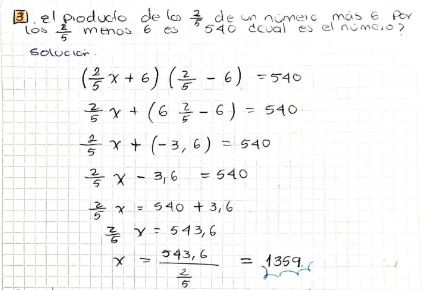 3. el producto de los 2/5 de un número más 6 por
los 2/5 menos 6 es 540 ¿cual es el número?
Solución.
(2/5 x + 6) (2/5 - 6) = 540
2/5 x + (6 2/5 - 6) = 540
2/5 x + (-3,6) = 540
2/5 x - 3,6 = 540
2/5 x = 540 + 3,6
2/5 x = 543,6
x = 543,6 / 2/5 = 1359